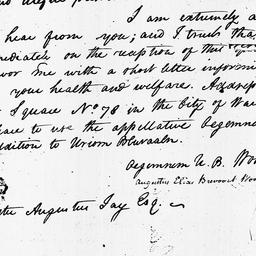 I am extremely a
hear from you; and I trust that
mediately on the reception of this
vor me with a short letter informin
your health and welfare. Address
Square No. 78 in the City of Wa
to use the appellative Oegemnem
dition to Uriom
Oegemnem U. B. Woo
Augustus Elias Brevoort Woo
Augustus Jay Esq.